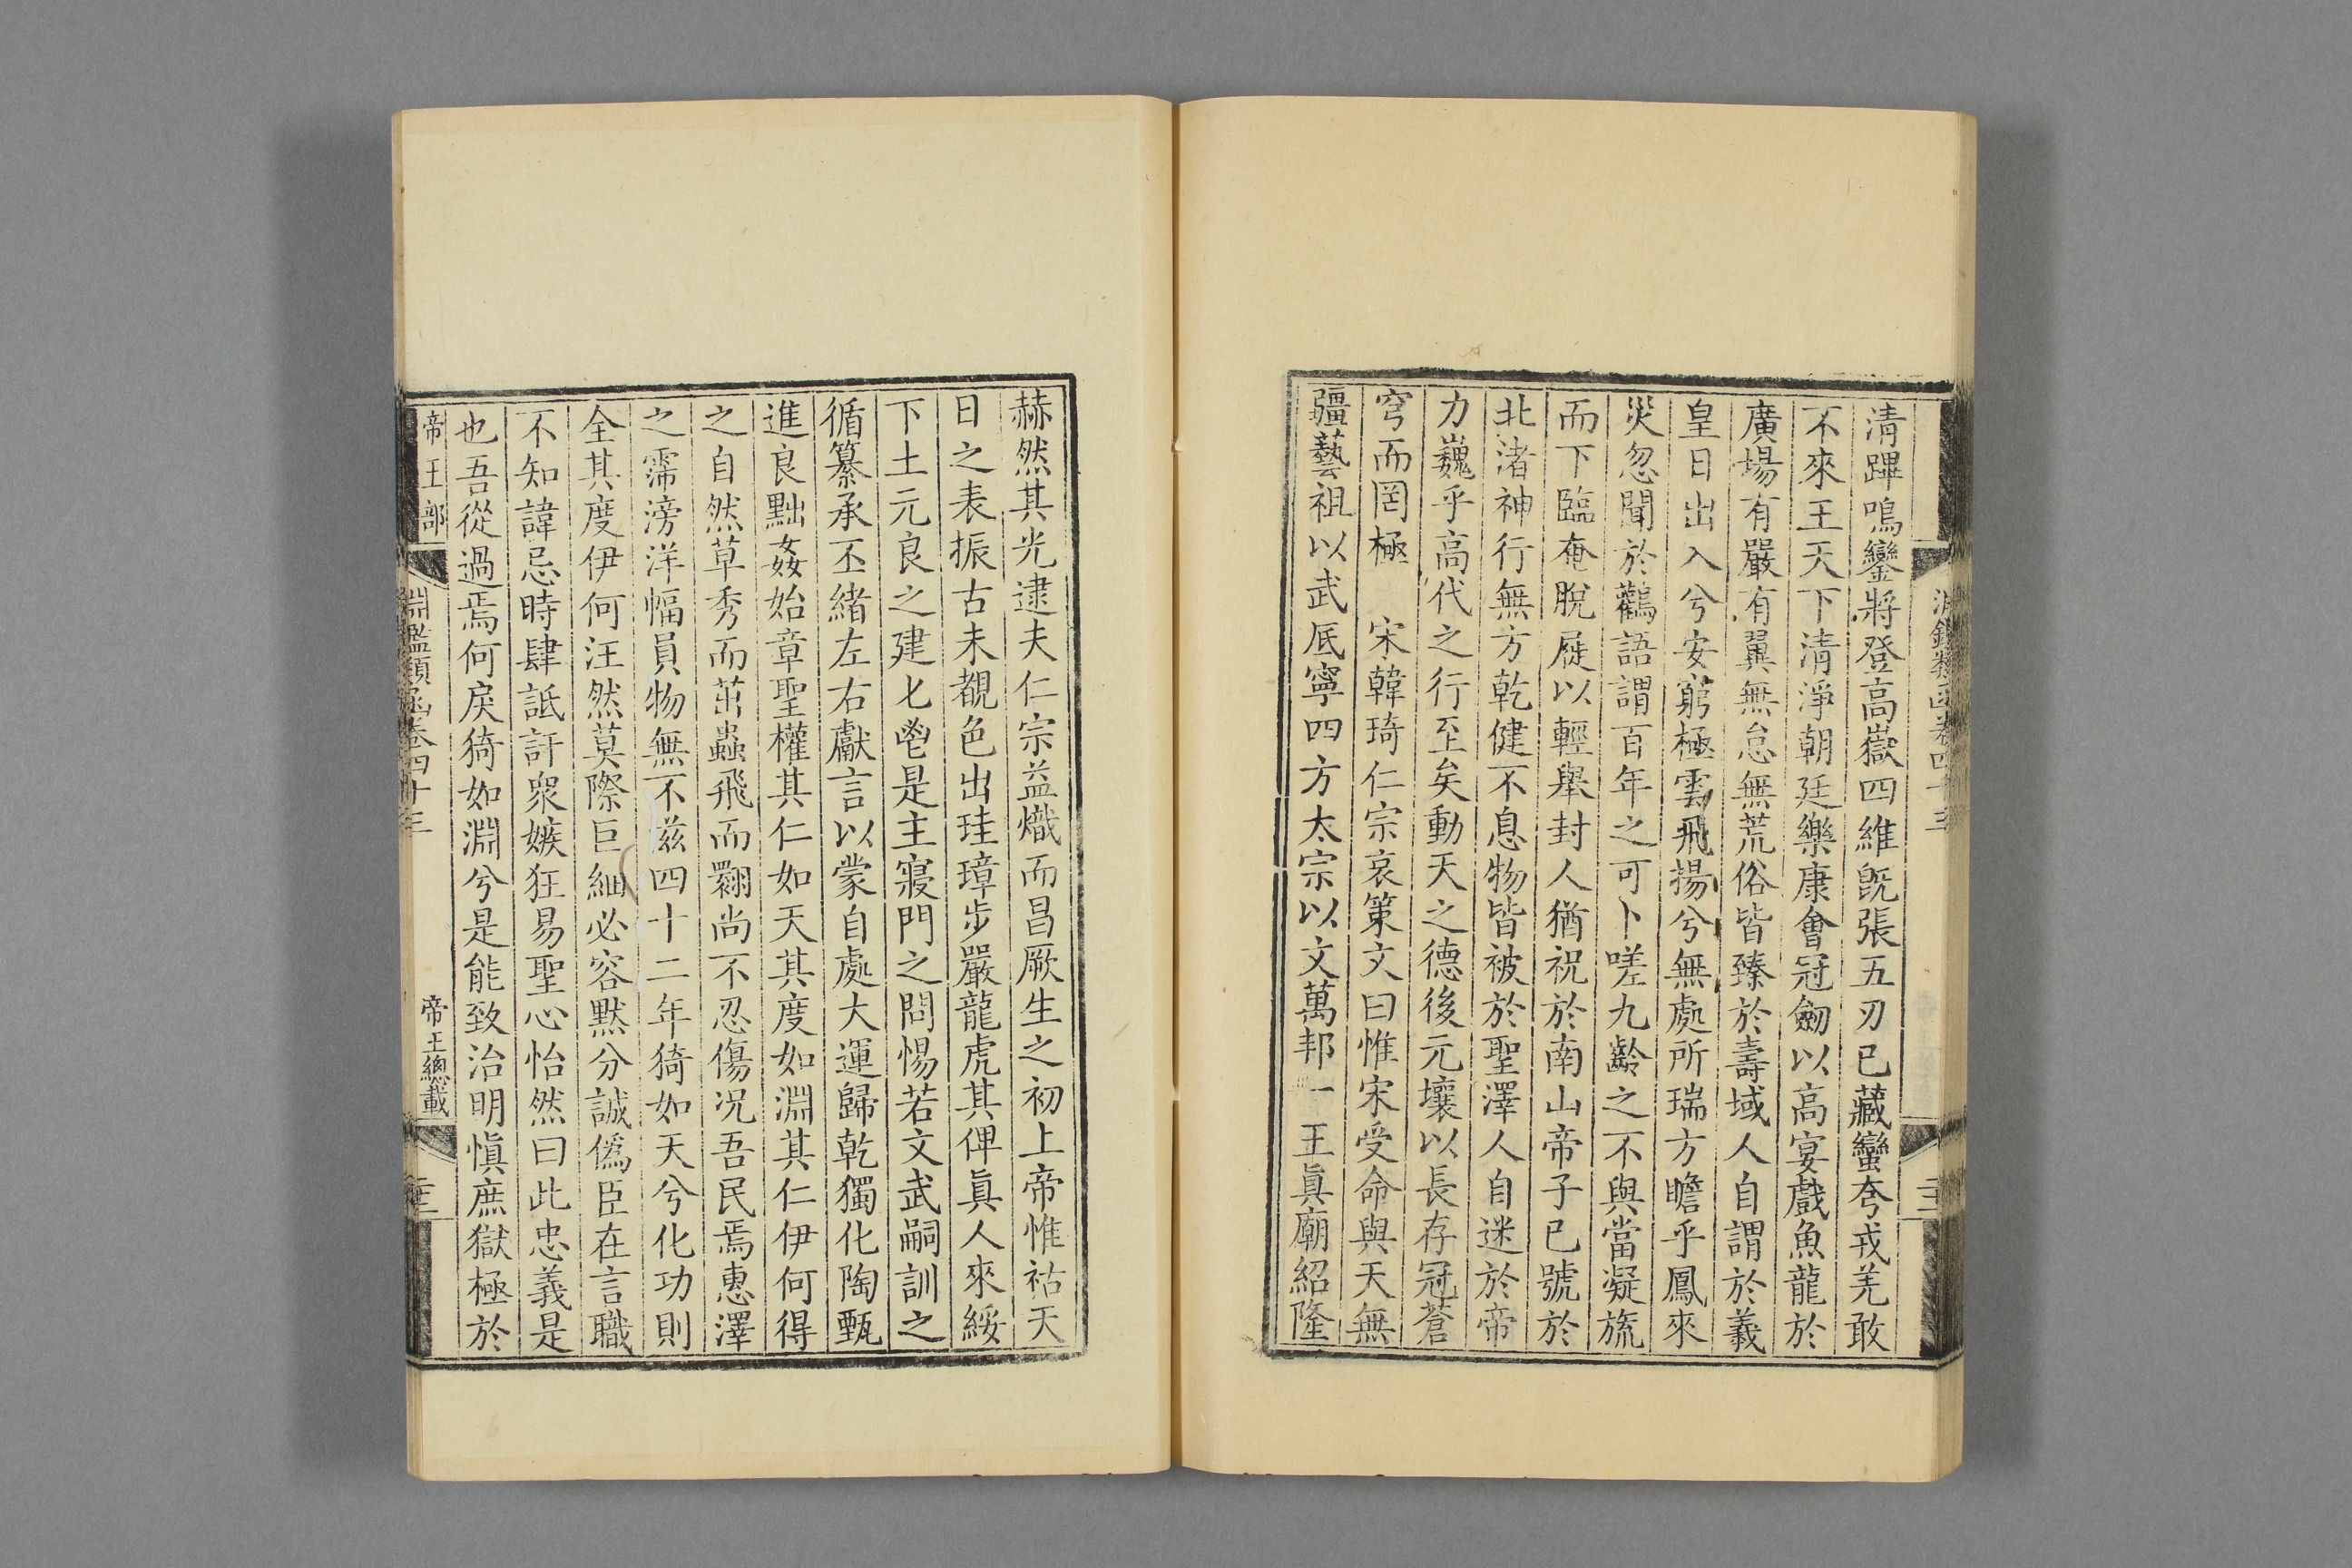 清蹕鳴鑾將登高嶽四維旣張五刃已藏蠻夸戎羌敢
不來王天下清淨朝廷樂康會冠劒以高宴戲魚龍於
廣場有嚴有翼無怠無荒俗皆臻於壽域人自謂於羲
皇日出入兮安窮極雲飛揚兮無處所瑞方瞻乎鳳來
災忽聞於鸛語謂百年之可卜嗟九齡之不與當凝旒
而下臨奄脫屣以輕舉封人猶祝於南山帝子已號於
北渚神行無方乾健不息物皆被於聖澤人自迷於帝
力巍乎高代之行至矣動天之德後元壤以長存冠蒼
穹而罔極 宋韓琦仁宗哀策文曰惟宋受命與天無
疆藝祖以武厎寧四方太宗以文萬邦一王眞廟紹隆
赫然其光逮夫仁宗益熾而昌厥生之初上帝惟祜天
日之表振古未覩色出珪璋步嚴龍虎其俾眞人來綏
下土元良之建匕鬯是主寢門之問惕若文武嗣訓之
循纂承丕緒左右獻言以蒙自處大運歸乾獨化陶甄
進良黜姦始章聖權其仁如天其度如淵其仁伊何得
之自然草秀而茁蟲飛而翾尚不忍傷况吾民焉惠澤
之霈滂洋幅員物無不滋四十二年猗如天兮化功則
全其度伊何汪然莫際巨細必容黙分誠僞臣在言職
不知諱忌時肆詆訐衆嫉狂易聖心怡然曰此忠義是
也吾從過焉何戾猗如淵兮是能致治明愼庶獄極於
帝王部 淵鑑類函卷四十三 帝王總載 二十三